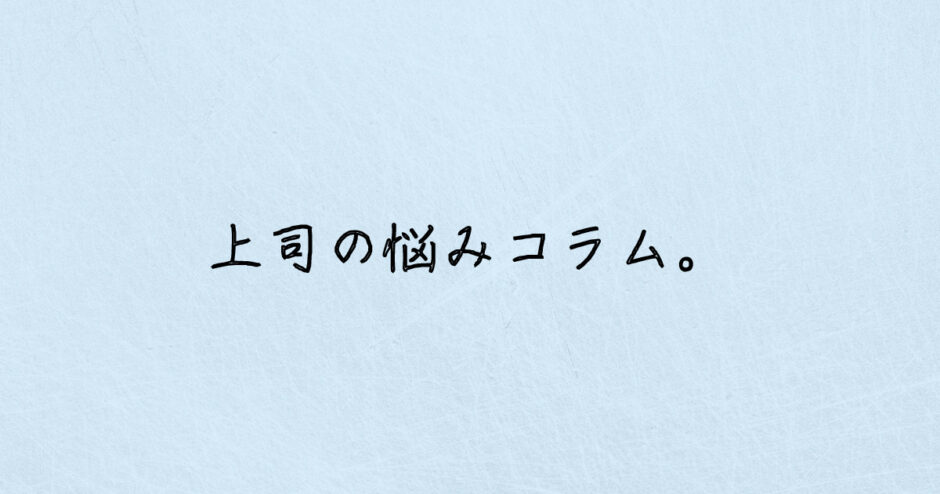 上司の悩みコラム。